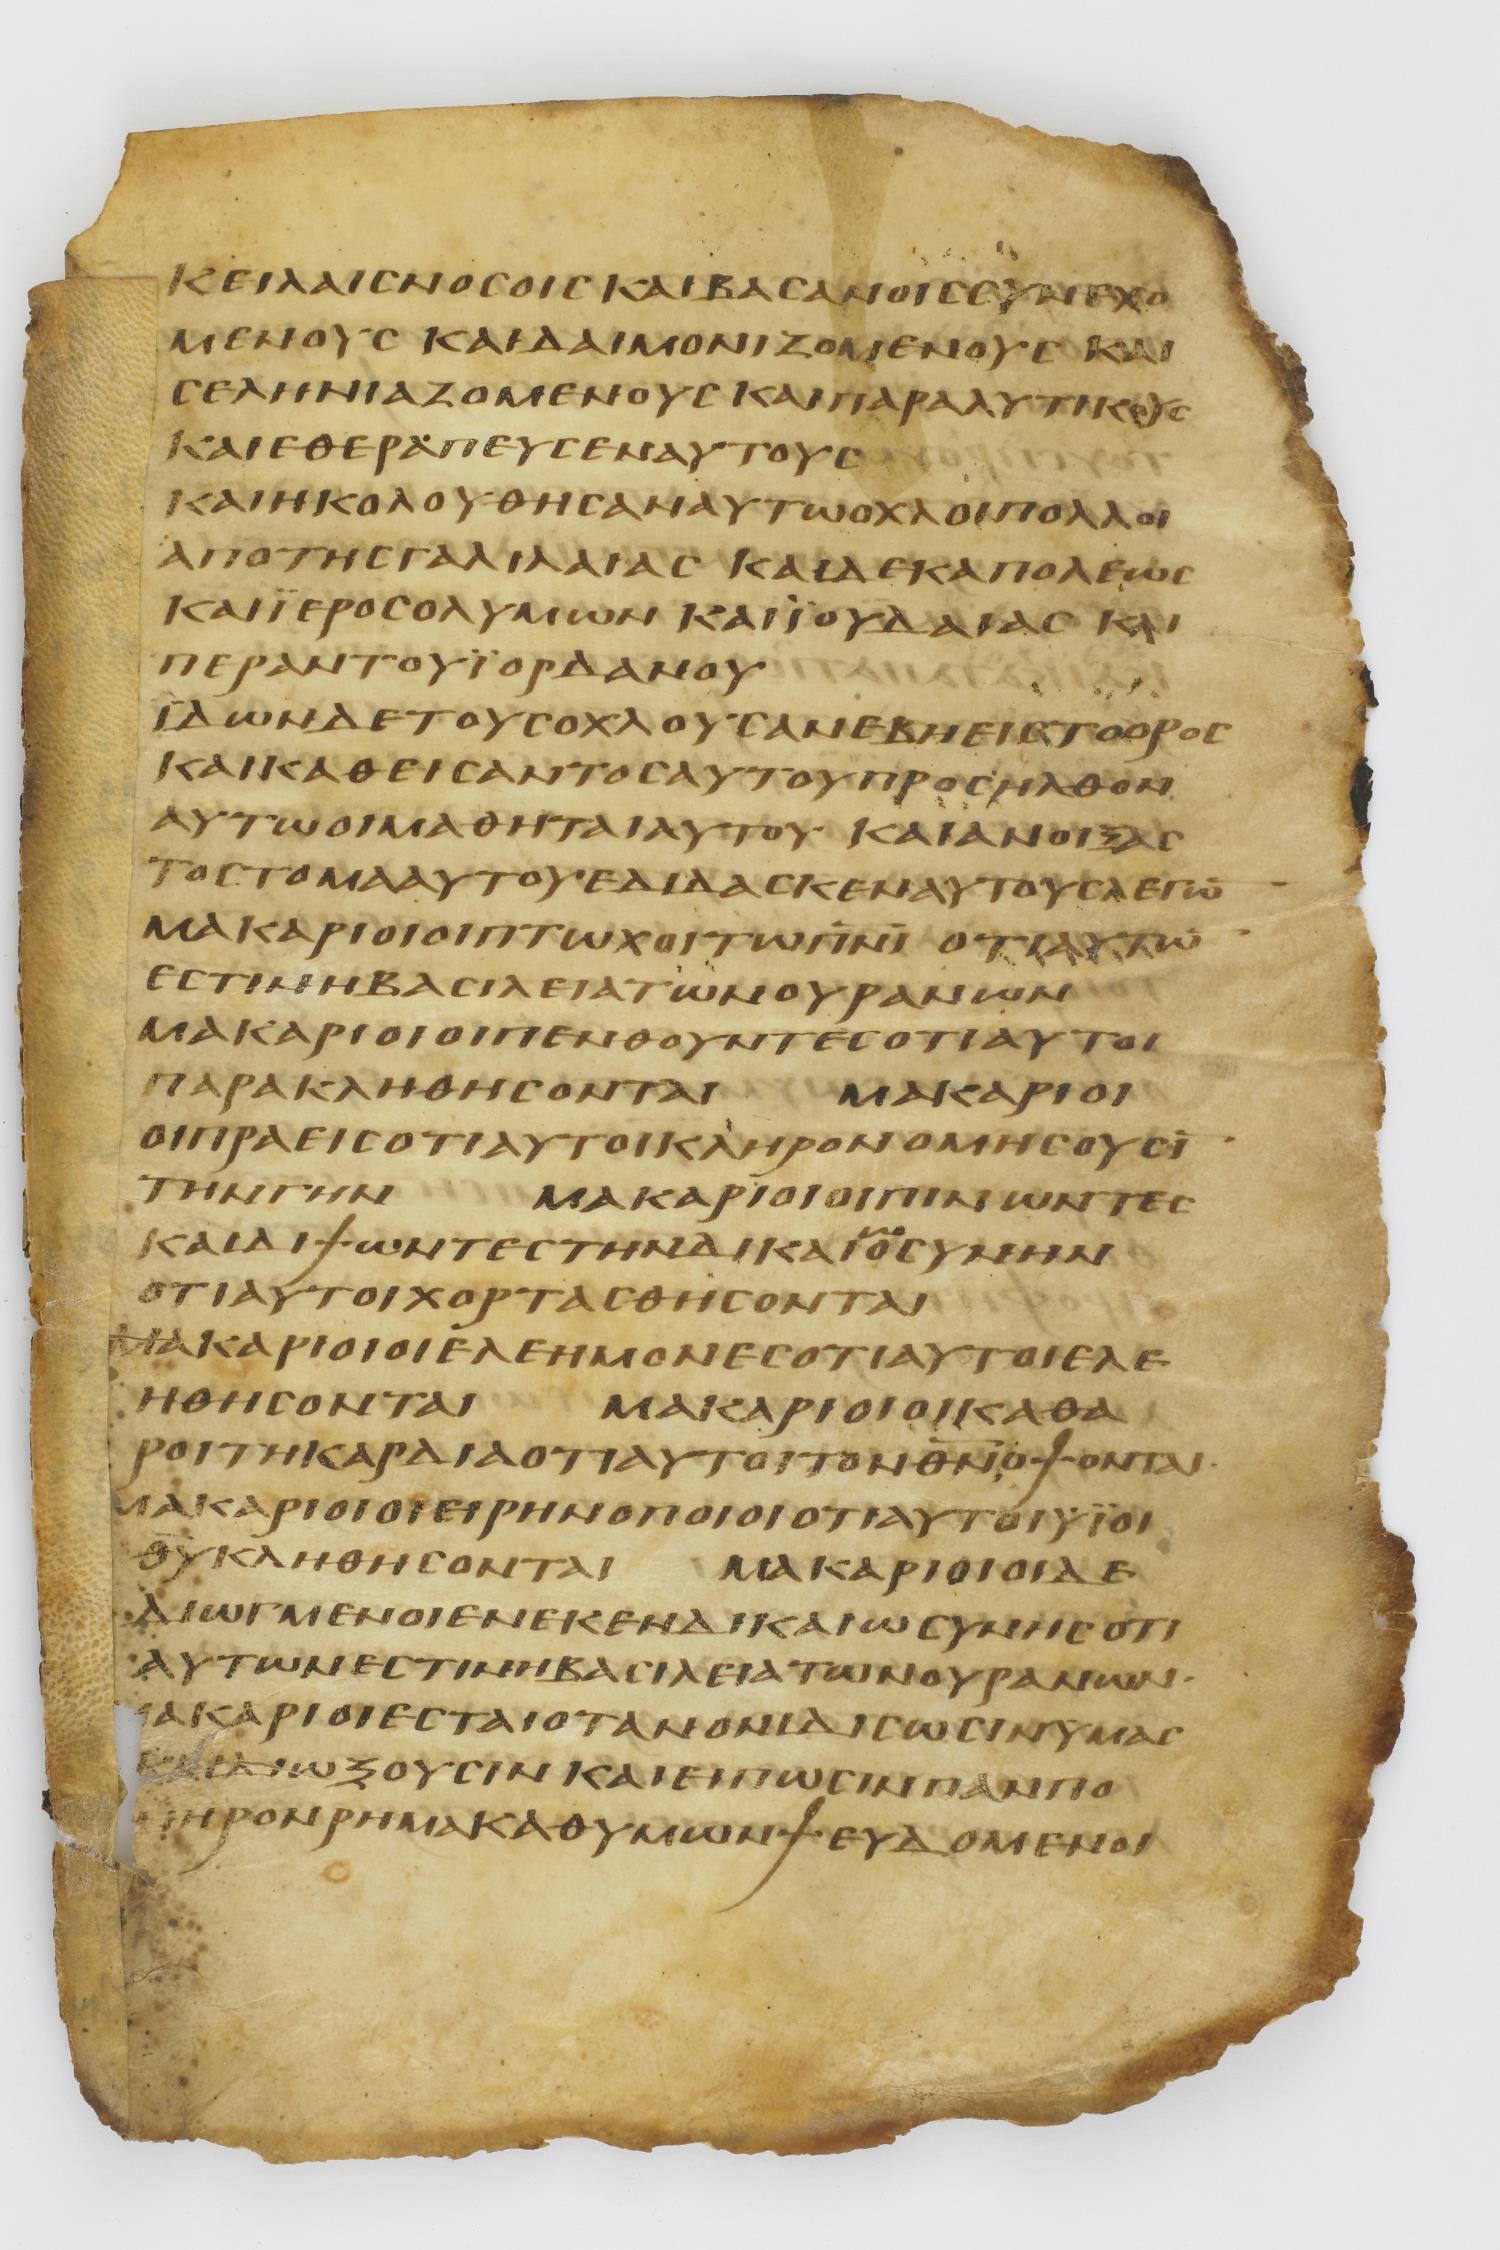 ΚΕΙΛΑΙϹΝΟϹΟΙϹ ΚΑΙΒΑϹΑΝΟΙϹϹΥΝΕΧΟ
ΜΕΝΟΥϹ ΚΑΙΔΑΙΜΟΝΙΖΟΜΕΝΟΥϹ ΚΑΙ
ϹΕΛΗΝΙΑΖΟΜΕΝΟΥϹ ΚΑΙΠΑΡΑΛΥΤΙΚΟΥϹ
ΚΑΙΕΘΕΡΑΠΕΥϹΕΝΑΥΤΟΥϹ
ΚΑΙΗΚΟΛΟΥΘΗϹΑΝΑΥΤΩΟΧΛΟΙΠΟΛΛΟΙ
ΑΠΟΤΗϹΓΑΛΙΛΑΙΑϹ ΚΑΙΔΕΚΑΠΟΛΕΩϹ
ΚΑΙΪΕΡΟϹΟΛΥΜΩΝ ΚΑΙΪΟΥΔΑΙΑϹ ΚΑΙ
ΠΕΡΑΝΤΟΥΪΟΡΔΑΝΟΥ
ΪΔΩΝΔΕΤΟΥϹΟΧΛΟΥϹΑΝΕΒΗΕΙϹΤΟΟΡΟϹ
ΚΑΙΚΑΘΕΙϹΑΝΤΟϹΑΥΤΟΥΠΡΟϹΗΛΘΟΝ
ΑΥΤΩΟΙΜΑΘΗΤΑΙΑΥΤΟΥ ΚΑΙΑΝΟΙΞΑϹ
ΤΟϹΤΟΜΑΑΥΤΟΥΕΔΙΔΑϹΚΕΝΑΥΤΟΥϹΛΕΓΩ̅
ΜΑΚΑΡΙΟΙΟΙΠΤΩΧΟΙΤΩΠ̅Ν̅Ι̅ ΟΤΙΑΥΤΩ̅
ΕϹΤΙΝΗΒΑϹΙΛΕΙΑΤΩΝΟΥΡΑΝΩΝ
ΜΑΚΑΡΙΟΙΟΙΠΕΝΘΟΥΝΤΕϹΟΤΙΑΥΤΟΙ
ΠΑΡΑΚΛΗΘΗϹΟΝΤΑΙ ΜΑΚΑΡΙΟΙ
ΟΙΠΡΑΕΙϹΟΤΙΑΥΤΟΙΚΛΗΡΟΝΟΜΗϹΟΥϹΙ̅
ΤΗΝΓΗΝ ΜΑΚΑΡΙΟΙΟΙΠΙΝΩΝΤΕϹ
ΚΑΙΔΙΨΩΝΤΕϹΤΗΝΔΙΚΑΙΟϹΥΝΗΝ
ΟΤΙΑΥΤΟΙΧΟΡΤΑϹΘΗϹΟΝΤΑΙ
ΜΑΚΑΡΙΟΙΟΙΕΛΕΗΜΟΝΕϹΟΤΙΑΥΤΟΙΕΛΕ
ΗΘΗϹΟΝΤΑΙ ΜΑΚΑΡΙΟΙΟΙΚΑΘΑ
ΡΟΙΤΗΚΑΡΔΙΑΟΤΙΑΥΤΟΙΤΟΝΘ̅Ν̅ΟΨΟΝΤΑΙ·
ΜΑΚΑΡΙΟΙΟΙΕΙΡΗΝΟΠΟΙΟΙΟΤΙΑΥΤΟΙΫΪΟΙ
Θ̅Υ̅ΚΛΗΘΗϹΟΝΤΑΙ ΜΑΚΑΡΙΟΙΟΙΔΕ
ΔΙΩΓΜΕΝΟΙΕΝΕΚΕΝΔΙΚΑΙΩϹΥΝΗϹΟΤΙ
ΑΥΤΩΝΕϹΤΙΝΗΒΑϹΙΛΕΙΑΤΩΝΟΥΡΑΝΩΝ·
ΑΚΑΡΙΟΙΕϹΤΑΙΟΤΑΝΟΝΙΔΙϹΩϹΙΝΥΜΑϹ
ΚΑΙΔΙΩΞΟΥϹΙΝ ΚΑΙΕΙΠΩϹΙΝΠΑΝΠΟ
ΝΗΡΟΝΡΗΜΑΚΑΘΥΜΩΝΨΕΥΔΟΜΕΝΟΙ